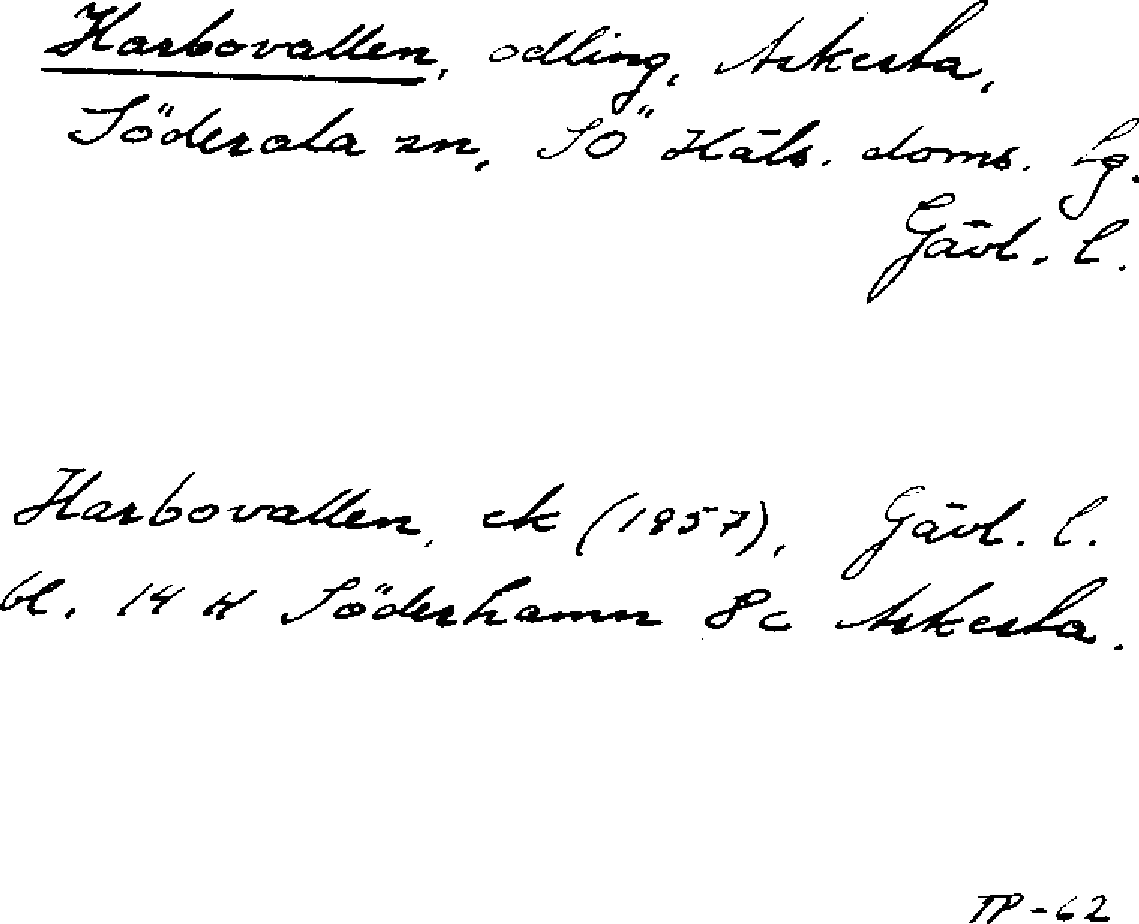 Harbovallen, odling, Askesta,
Söderala sn, SÖ Häls. doms. lg.
Gävl. l.
Harbovallen, ek (1957), Gävl. l.
bl. 14 H Söderhamn 8c Askesta.
TP-62